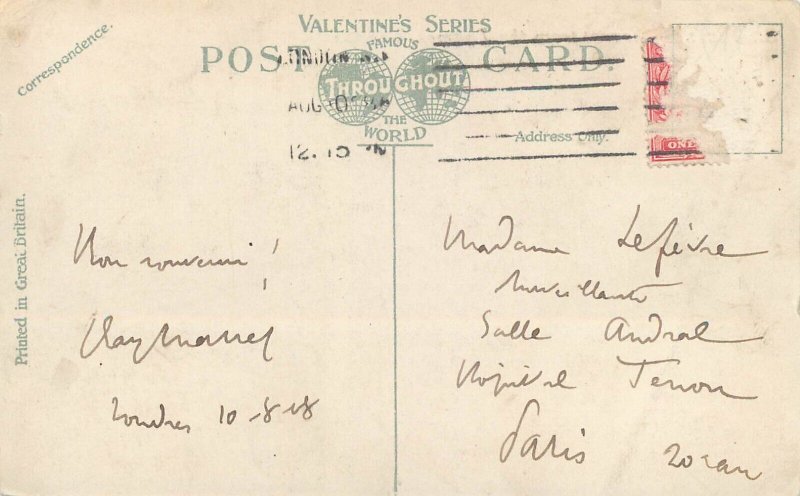 VALENTINE'S SERIES
FAMOUS
POST CARD.
THROUGHOUT
THE
WORLD
Correspondence.
Address Only.
Printed in Great Britain.
LONDON
AUG 10
12.15
ONE
Mon souvenir !
Londres 10-8-
Madame Lefèvre
Surveillante
Salle Andral
Hôpital Tenon
Paris 20